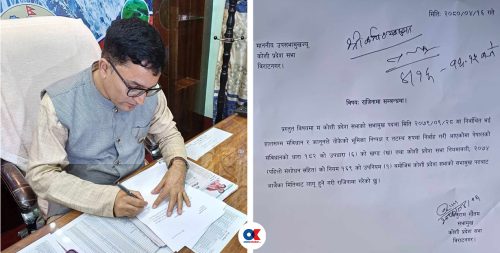 मिति: २०८०/०४/१६ गते
माननीय उपसभामुखज्यू
कोशी प्रदेश सभा
विराटनगर।
विषय: राजिनामा सम्बन्धमा।
प्रस्तुत विषयमा म कोशी प्रदेश सभाको सभामुख पदमा मिति २०७९/०९/२८ मा निर्वाचित भई
हालसम्म संविधान र कानूनले तोकेको भूमिका निष्पक्ष र तटस्थ रुपमा निर्वाह गरी आएकोमा नेपालको
संविधानको धारा १८२ को उपधारा (६) को खण्ड (ख) तथा कोशी प्रदेश सभा नियमावली, २०७४
(पहिलो संशोधन सहित) को नियम १६९ को उपनियम (१) बमोजिम कोशी प्रदेशको सभामुख पदबाट
आजैका मितिबाट लागू हुने गरी राजिनामा गरेको छु।
गौतम
सभामुख
कोशी प्रदेश सभा
विराटनगर।
OK